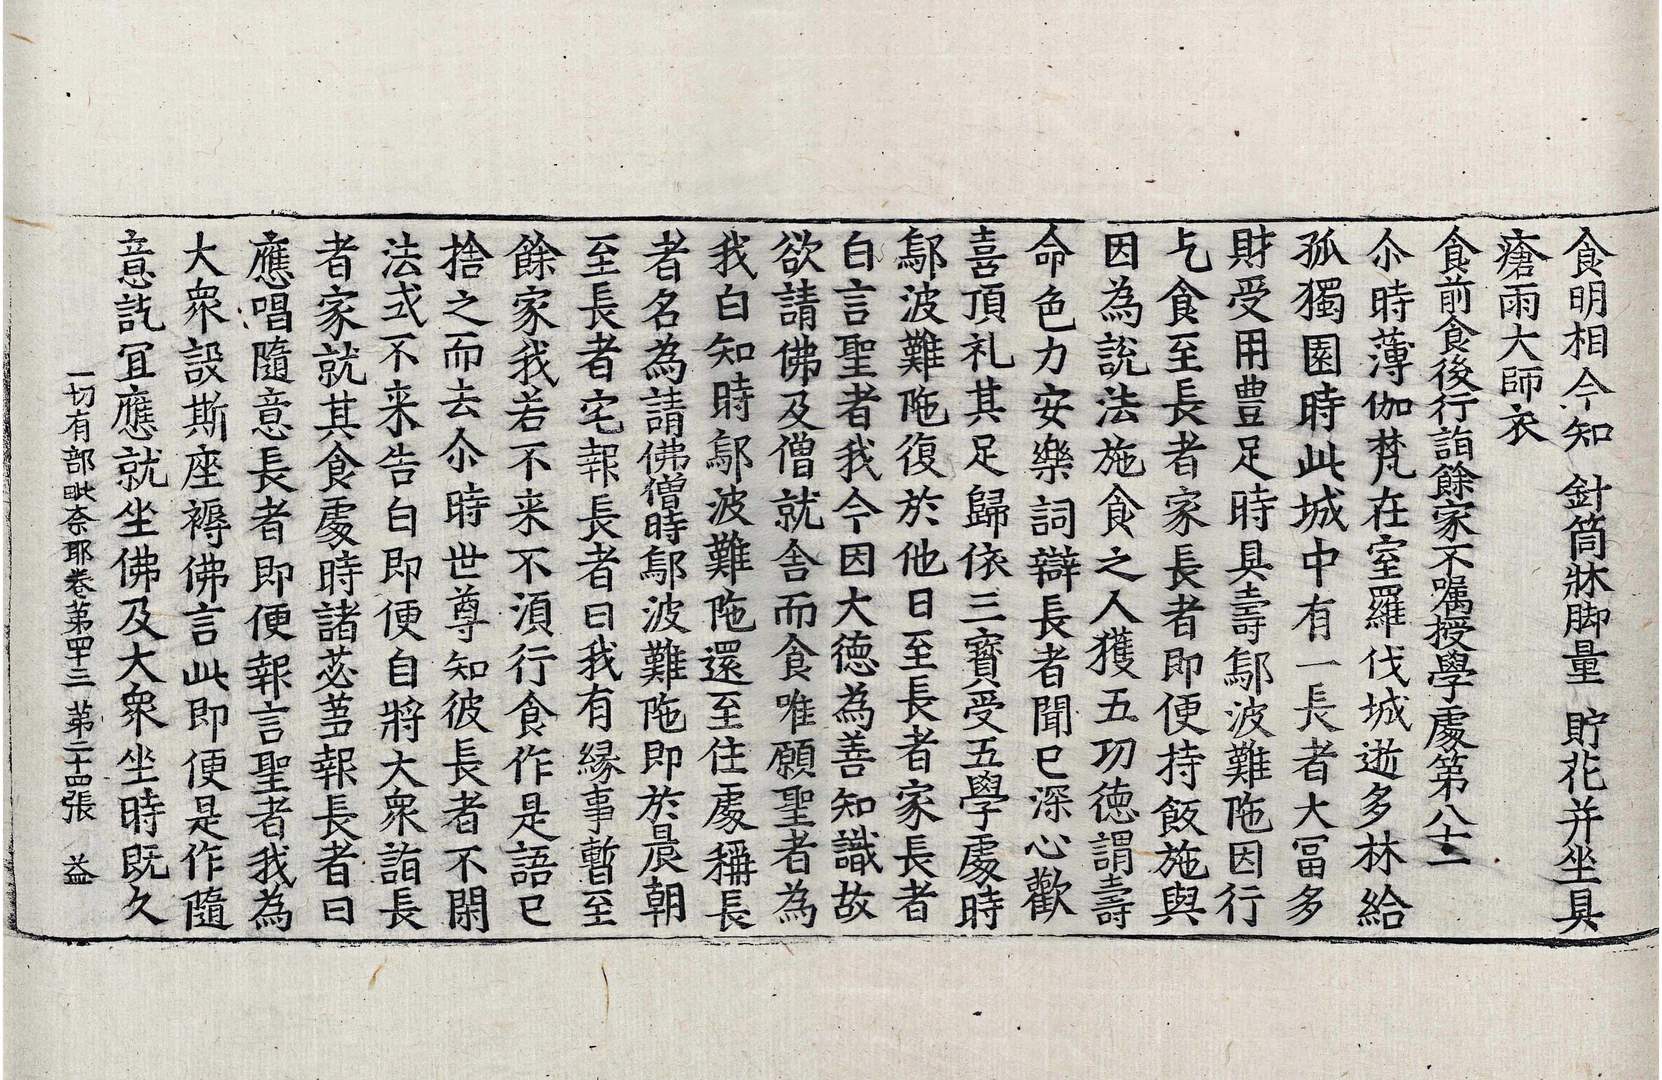 食明相今知　針筒牀脚量　貯花并坐具
瘡雨大師衣
食前食後行詣餘家不囑授學處第八十一
尒時薄伽梵在室羅伐城逝多林給
孤獨園時此城中有一長者大冨多
財受用豊足時具壽鄔波難陁因行
乞食至長者家長者即便持飯施與
因為說法施食之人獲五功徳謂壽
命色力安樂詞辯長者聞已深心歡
喜頂礼其足歸依三寳受五學處時
鄔波難陁復於他日至長者家長者
白言聖者我今因大徳為善知識故
欲請佛及僧就舎而食唯願聖者為
我白知時鄔波難陁還至住處稱長
者名為請佛僧時鄔波難陁即於晨朝
至長者宅報長者曰我有縁事暫至
餘家我若不来不湏行食作是語已
捨之而去尒時世尊知彼長者不閑
法式不来告白即便自將大衆詣長
者家就其食處時諸苾蒭報長者曰
應唱隨意長者即便報言聖者我為
大衆設斯座褥佛言此即便是作隨
意訖冝應就坐佛及大衆坐時既久
一切有部毗奈耶卷第四十三　第二十四張　益